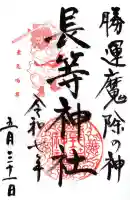 勝運魔除の神
長等神社
令和七年
五月三十一日